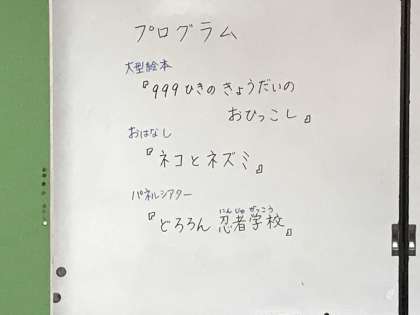 プログラム
大型絵本
『999ひきのきょうだいの
おひっこし』
おはなし
『ネコとネズミ』
パネルシアター
『どろろん忍者学校』
にんじゃ がっこう